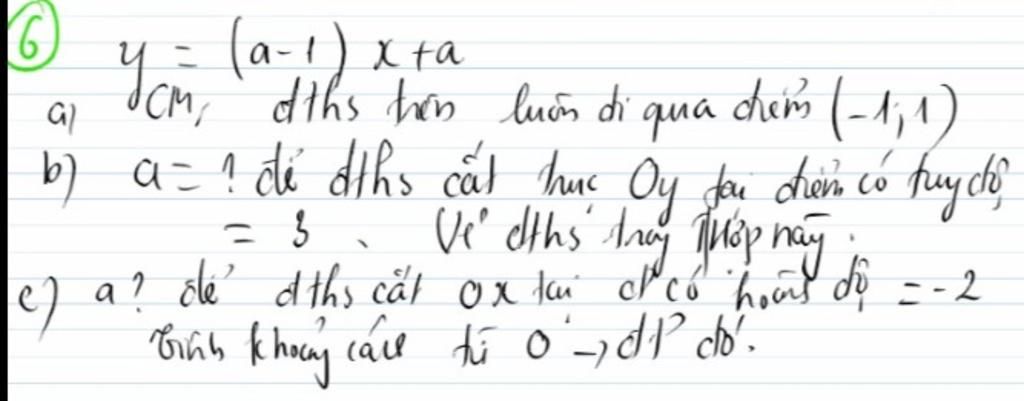 6
y = (a-1) x + a
a) CM, đths trên luôn đi qua điểm (-1; 1)
b) a = ? để đths cắt trục Oy tại điểm có tung độ
= 3. Vẽ đths trong trường hợp này.
c) a? để đths cắt ox tại đ' có hoành độ = -2
Tính khoảng cách từ O → đt đó.